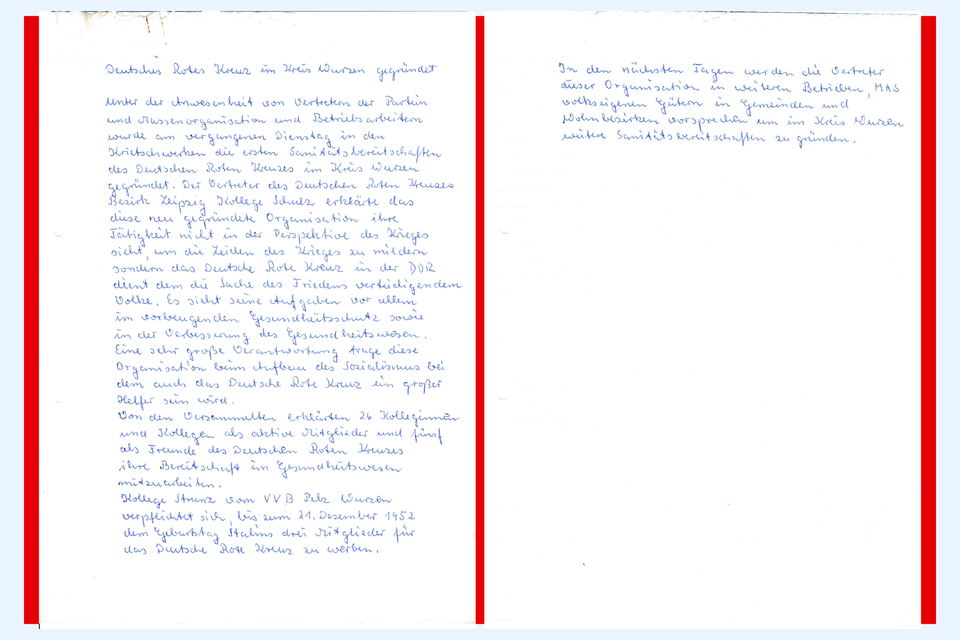 Deutsches Rotes Kreuz im Kreis Wurzen gegründet
Unter der Anwesenheit von Vertretern der Partein
und Massenorganisation und Betriebsarbeitern
wurde am vergangenen Dienstag in den
Krietschwerken die ersten Sanitätsbereitschaften
des Deutschen Roten Kreuzes im Kreis Wurzen
gegründet. Der Vertreter des Deutschen Roten Kreuzes
Bezirk Leipzig Kollege Schulz erklärte das
diese neu gegründete Organisation ihre
Tätigkeit nicht in der Perspektive des Krieges
sieht, um die Leiden des Krieges zu mildern
sondern das Deutsche Rote Kreuz in der DDR
dient dem die Sache des Friedens verteidigendem
Volke. Es sieht seine Aufgaben vor allem
im vorbeugenden Gesundheitsschutz sowie
in der Verbesserung des Gesundheitswesen.
Eine sehr große Verantwortung trage diese
Organisation beim Aufbau des Sozialismus bei
dem auch das Deutsche Rote Kreuz ein großer
Helfer sein wird.
Von den Versammelten erklärten 26 Kolleginnen
und Kollegen als aktive Mitglieder und fünf
als Freunde des Deutschen Roten Kreuzes
ihre Bereitschaft im Gesundheitswesen
mitzuarbeiten.
Kollege Strunz vom VVB Pelz Wurzen
verpflichtet sich, bis zum 21. Dezember 1952
dem Geburtstag Stalins drei Mitglieder für
das Deutsche Rote Kreuz zu werben.
In den nächsten Tagen werden die Vertreter
dieser Organisation in weiteren Betrieben, MAS
volkseigenen Gütern in Gemeinden und
Wohnbezirken vorsprechen um im Kreis Wurzen
weitere Sanitätsbereitschaften zu gründen.